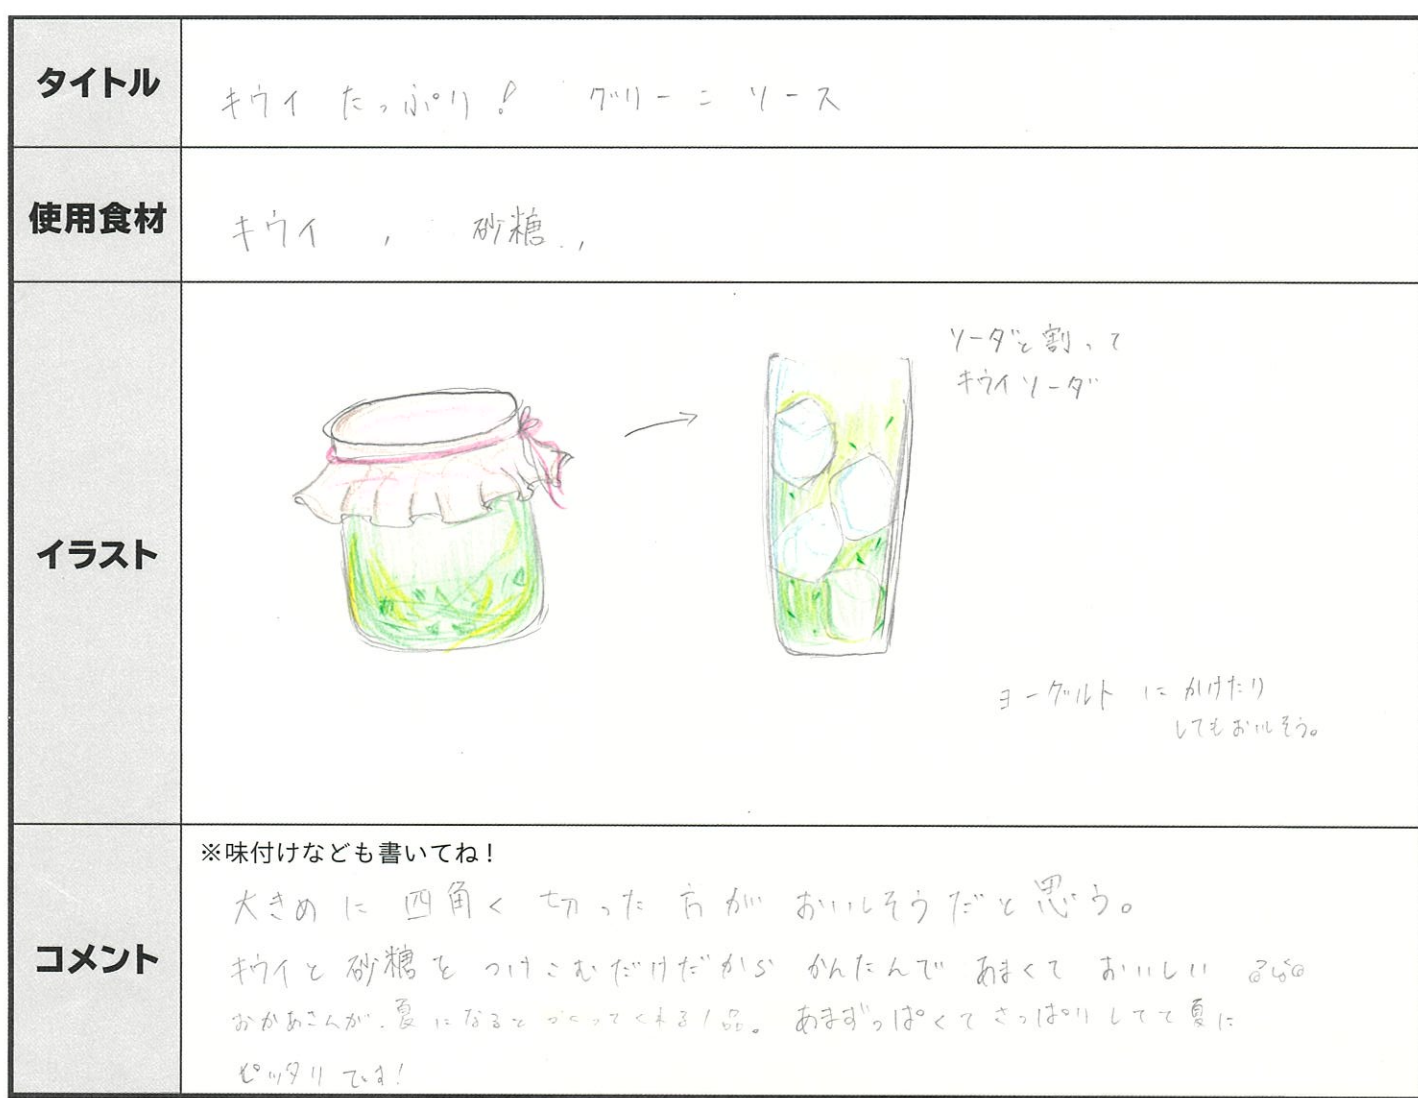 タイトル
キウイ たっぷり! グリーン ソース
使用食材
キウイ , 砂糖 . ,
イラスト
ソーダと割って
キウイソーダ
ヨーグルト に かけたり
してもおいしそう。
コメント
※味付けなども書いてね!
大きめ に 四角く 切った 方が おいしそうだと思う。
キウイと 砂糖を つけこむだけだから かんたんで あまくて おいしい
おかあさんが、夏になると つくってくれる1品。 あまずっぱくて さっぱりしてて夏に
ピッタリです!